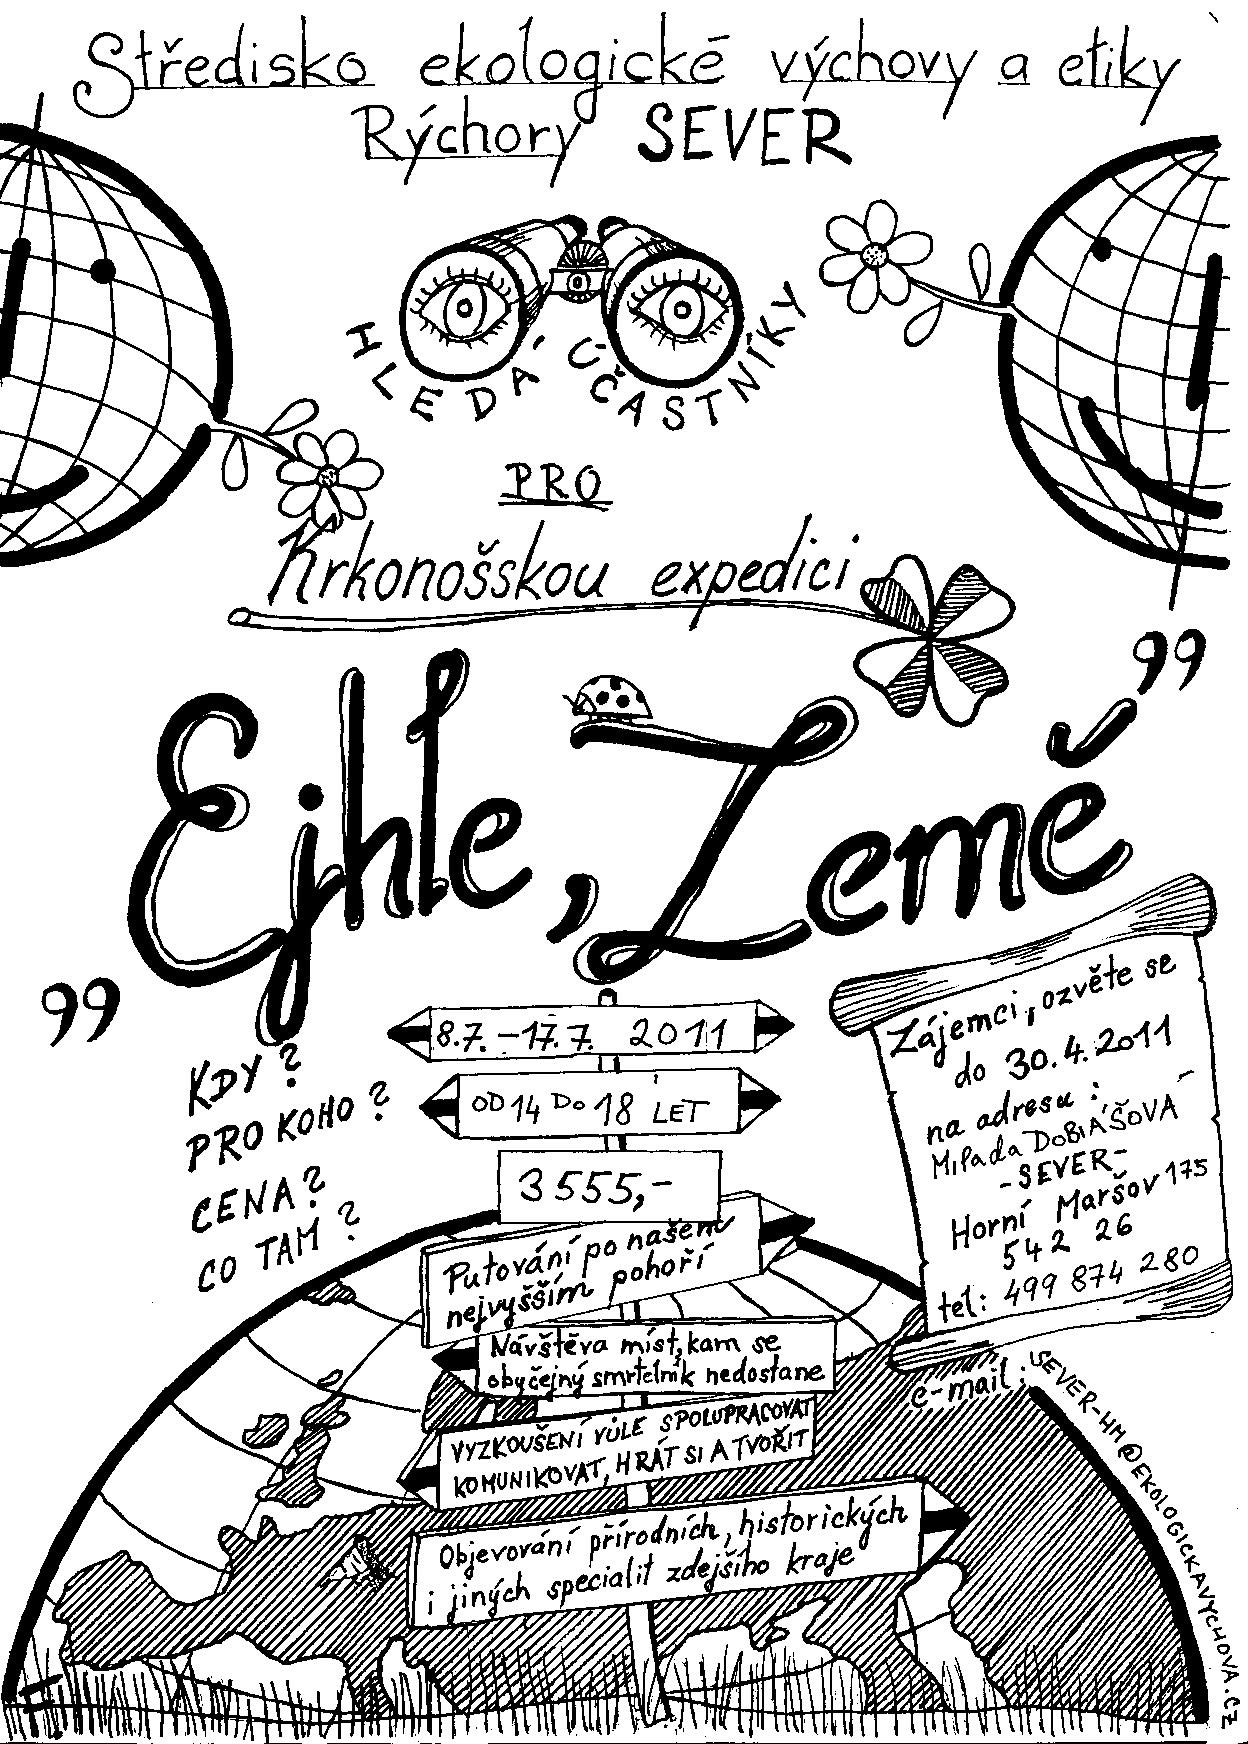 Středisko ekologické výchovy a etiky
Rýchory SEVER
HLEDÁ ÚČASTNÍKY
PRO
Krkonošskou expedici
„Ejhle, Země"
KDY?
8.7. – 17.7. 2011
PRO KOHO?
OD 14 DO 18 LET
CENA?
3555,-
CO TAM?
Putování po našem
nejvyšším pohoří
Návštěva míst, kam se
obyčejný smrtelník nedostane
VYZKOUŠENÍ VŮLE SPOLUPRACOVAT
KOMUNIKOVAT, HRÁT SI A TVOŘIT
Objevování přírodních, historických
i jiných specialit zdejšího kraje
Zájemci, ozvěte se
do 30.4.2011
na adresu:
Milada DOBIÁŠOVÁ
-SEVER-
Horní Maršov 175
542 26
tel: 499 874 280
e-mail: SEVER-HM@EKOLOGICKAVYCHOVA.CZ